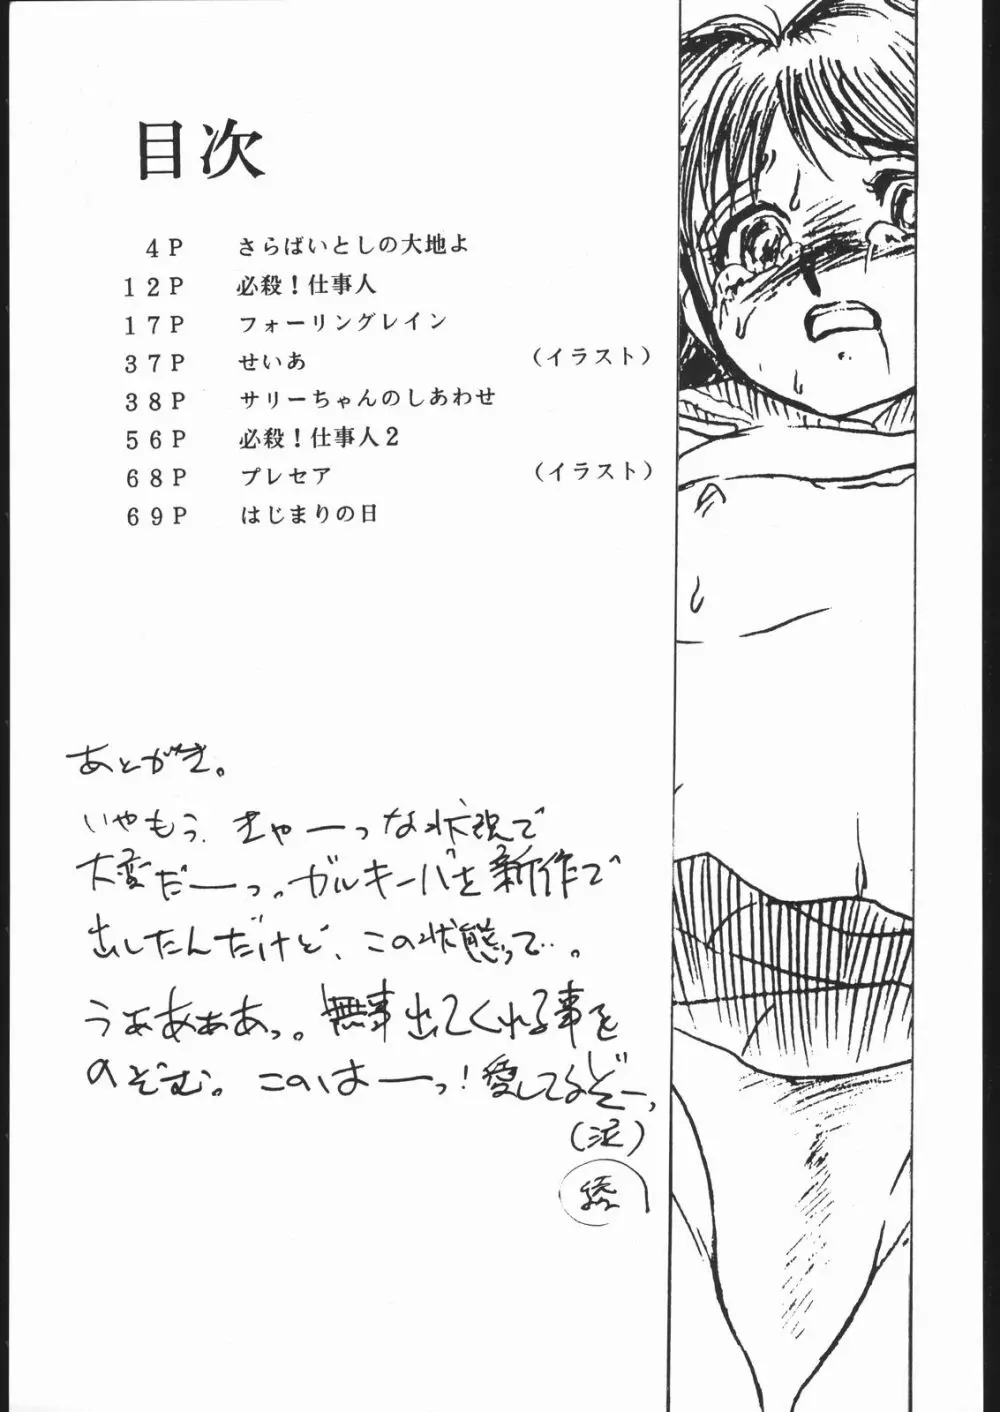 目次
4P さらばいとしの大地よ
12P 必殺！仕事人
17P フォーリングレイン
37P せいあ （イラスト）
38P サリーちゃんのしあわせ
56P 必殺！仕事人2
68P プレセア （イラスト）
69P はじまりの日
あとがき。
いやもう、きゃーっな状況で
大変だーっ。ガルキーバを新作で
出したんだけど、この状態って…。
うああぁあっ。無事出てくれる事を
のぞむ。このはーっ！愛してるぞー、
（泥）